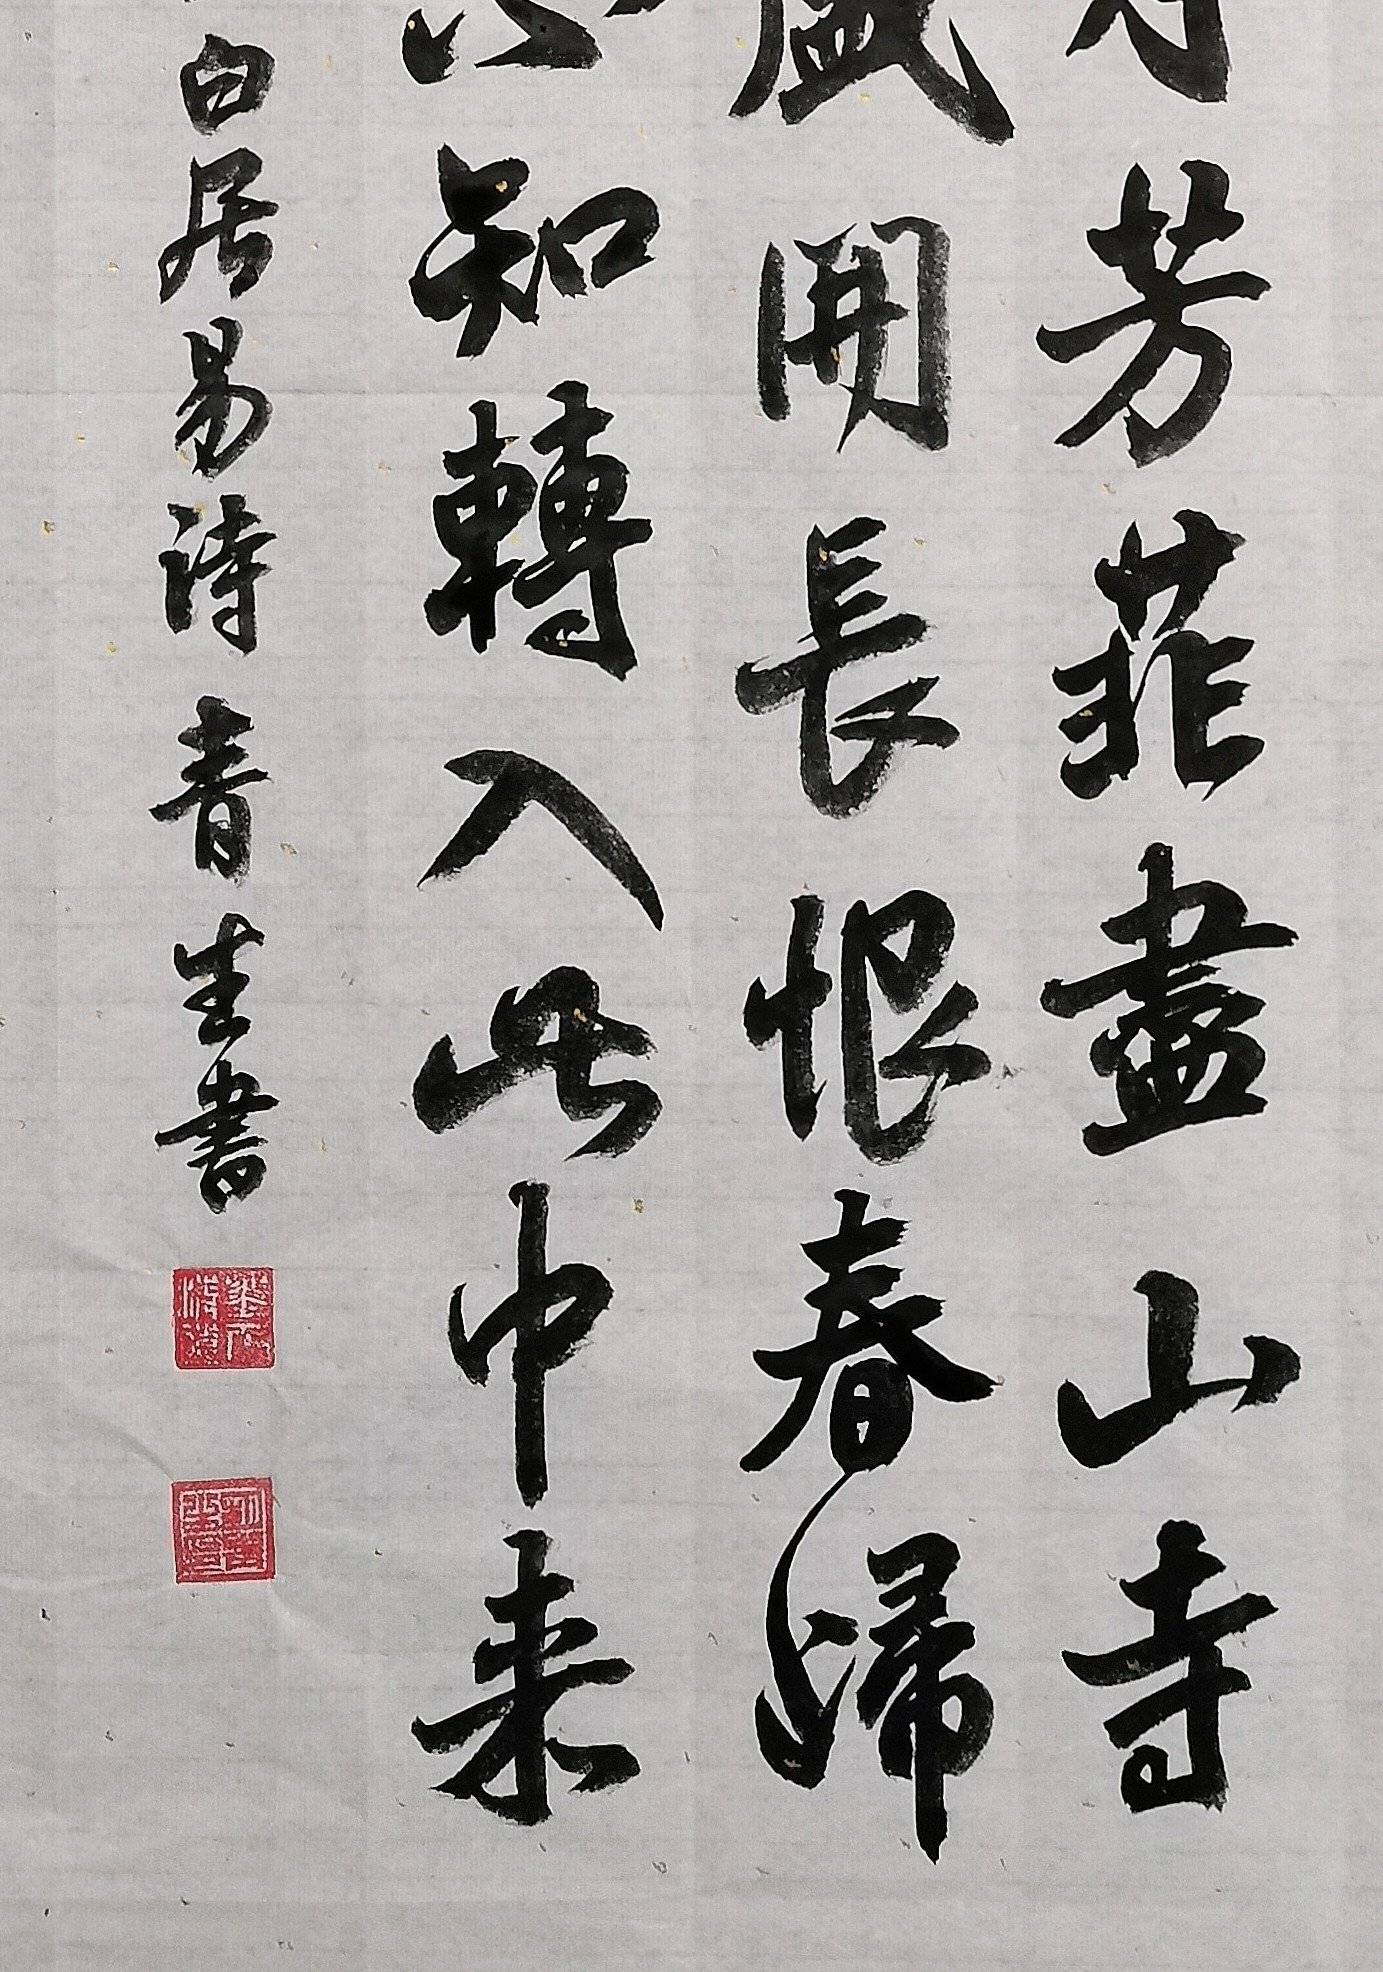 月芳菲盡山寺
盛開長恨春歸
不知轉入此中来
白居易詩青生書